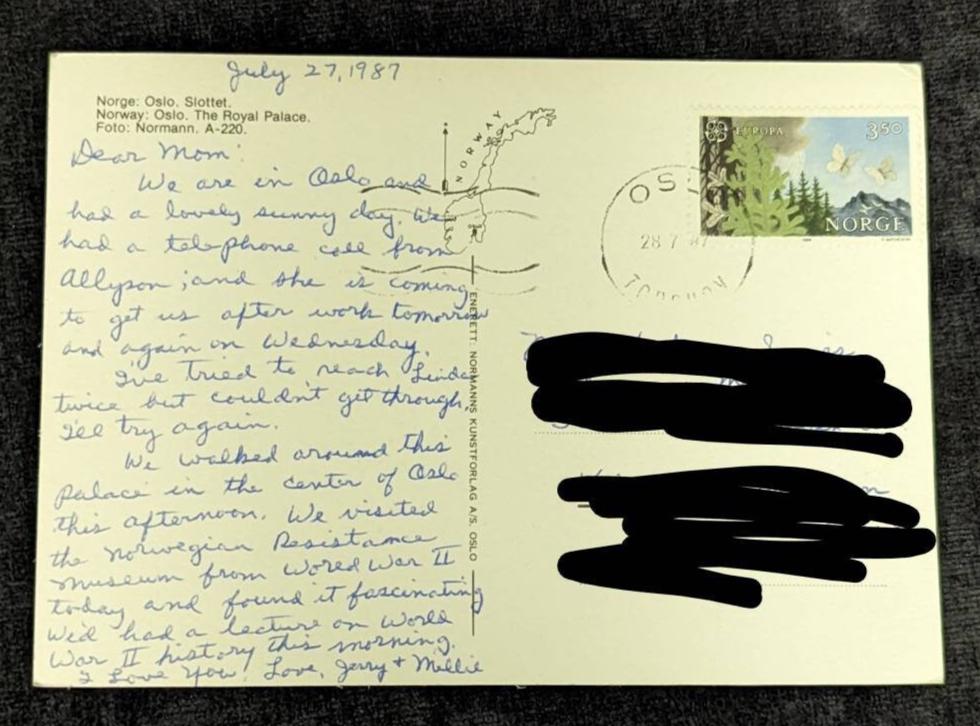 July 27, 1987
Norge: Oslo. Slottet.
Norway: Oslo. The Royal Palace.
Foto: Normann. A-220.
Dear Mom:
We are in Oslo and
had a lovely sunny day. We
had a telephone call from
Allyson; and she is coming
to get us after work tomorrow
and again on Wednesday.
I've tried to reach Linda
twice but couldn't get through,
I'll try again.
We walked around this
palace in the center of Oslo
this afternoon. We visited
the Norwegian Resistance
Museum from World War II
today and found it fascinating
We'd had a lecture on World
War II history this morning.
I Love You! Love, Jerry + Millie
ENERETT: NORMANNS KUNSTFORLAG A/S. OSLO
NORWAY
EUROPA
350
NORGE
OSL
28 7 87